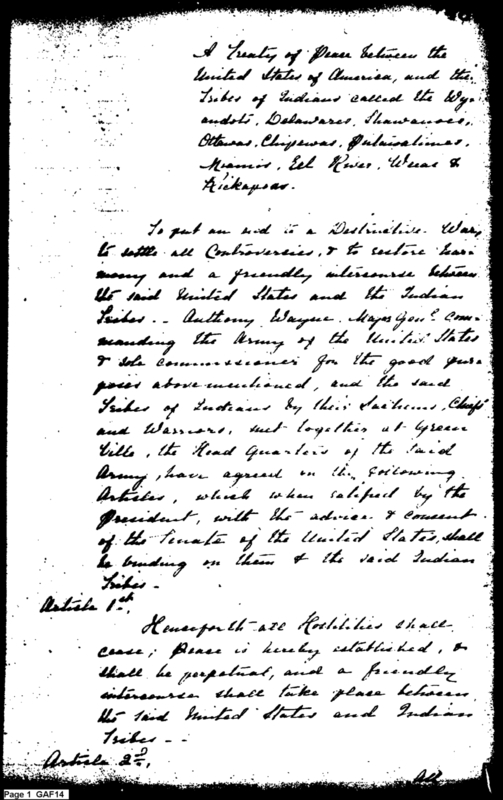 A Treaty of Peace between the
United States of America, and the
Tribes of Indians called the Wy-
andots, Delawares, Shawanoes,
Ottawas, Chipewas, Putawatimes,
Miamis, Eel River, Weeas &
Kickapoos.
To put an end to a Destructive War,
to settle all Controversies, & to restore har-
mony and a friendly intercourse between
the said United States and the Indian
Tribes -- Anthony Wayne Major Genl. Com-
manding the Army of the United States
& sole commissioner for the good pur-
poses above mentioned, and the said
Tribes of Indians by their Sachems, Chiefs
and Warriors, met together at Green
Ville, the Head Quarters of the said
Army, have agreed on the following
Articles, which when ratified by the
President, with the advice & consent
of the Senate of the United States, shall
be binding on them & the said Indian
Tribes -
Article 1st.
Henceforth all Hostilities shall
cease; Peace is hereby established, &
shall be perpetual, and a friendly
intercourse shall take place between
the said United States and Indian
Tribes --
Article 2d.
All
Page 1 GAF14